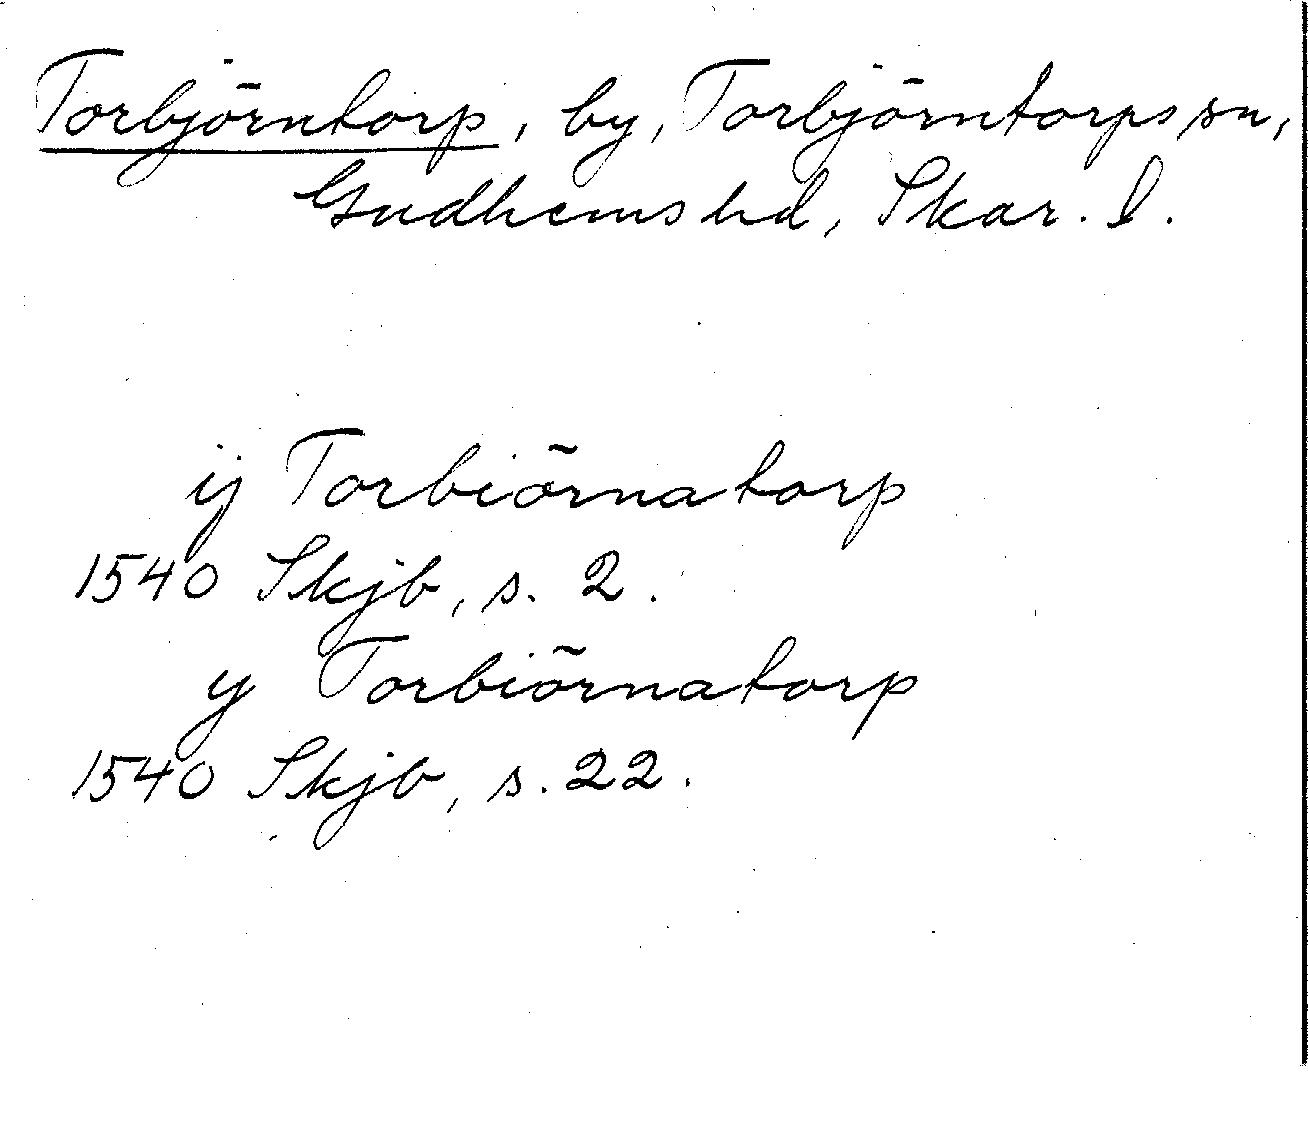 Torbjörntorp, by, Torbjörntorps sn,
Gudhems hd, Skar. l.
ij Torbiörnatorp
1540 Skjb, s. 2.
y Torbiörnatorp
1540 Skjb, s. 22.